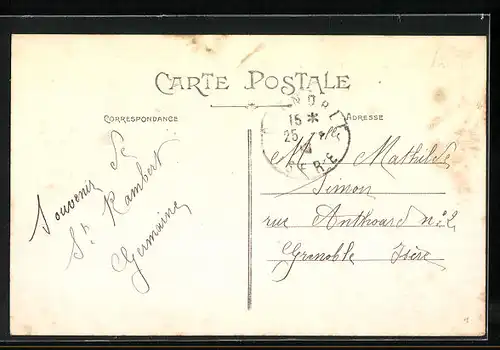 CARTE POSTALE
CORRESPONDANCE
ADRESSE
15 *
25
Souvenir de
St Rambert
Germaine
Mlle Mathilde
Simon
rue Anthoard n° 2
Grenoble Isère